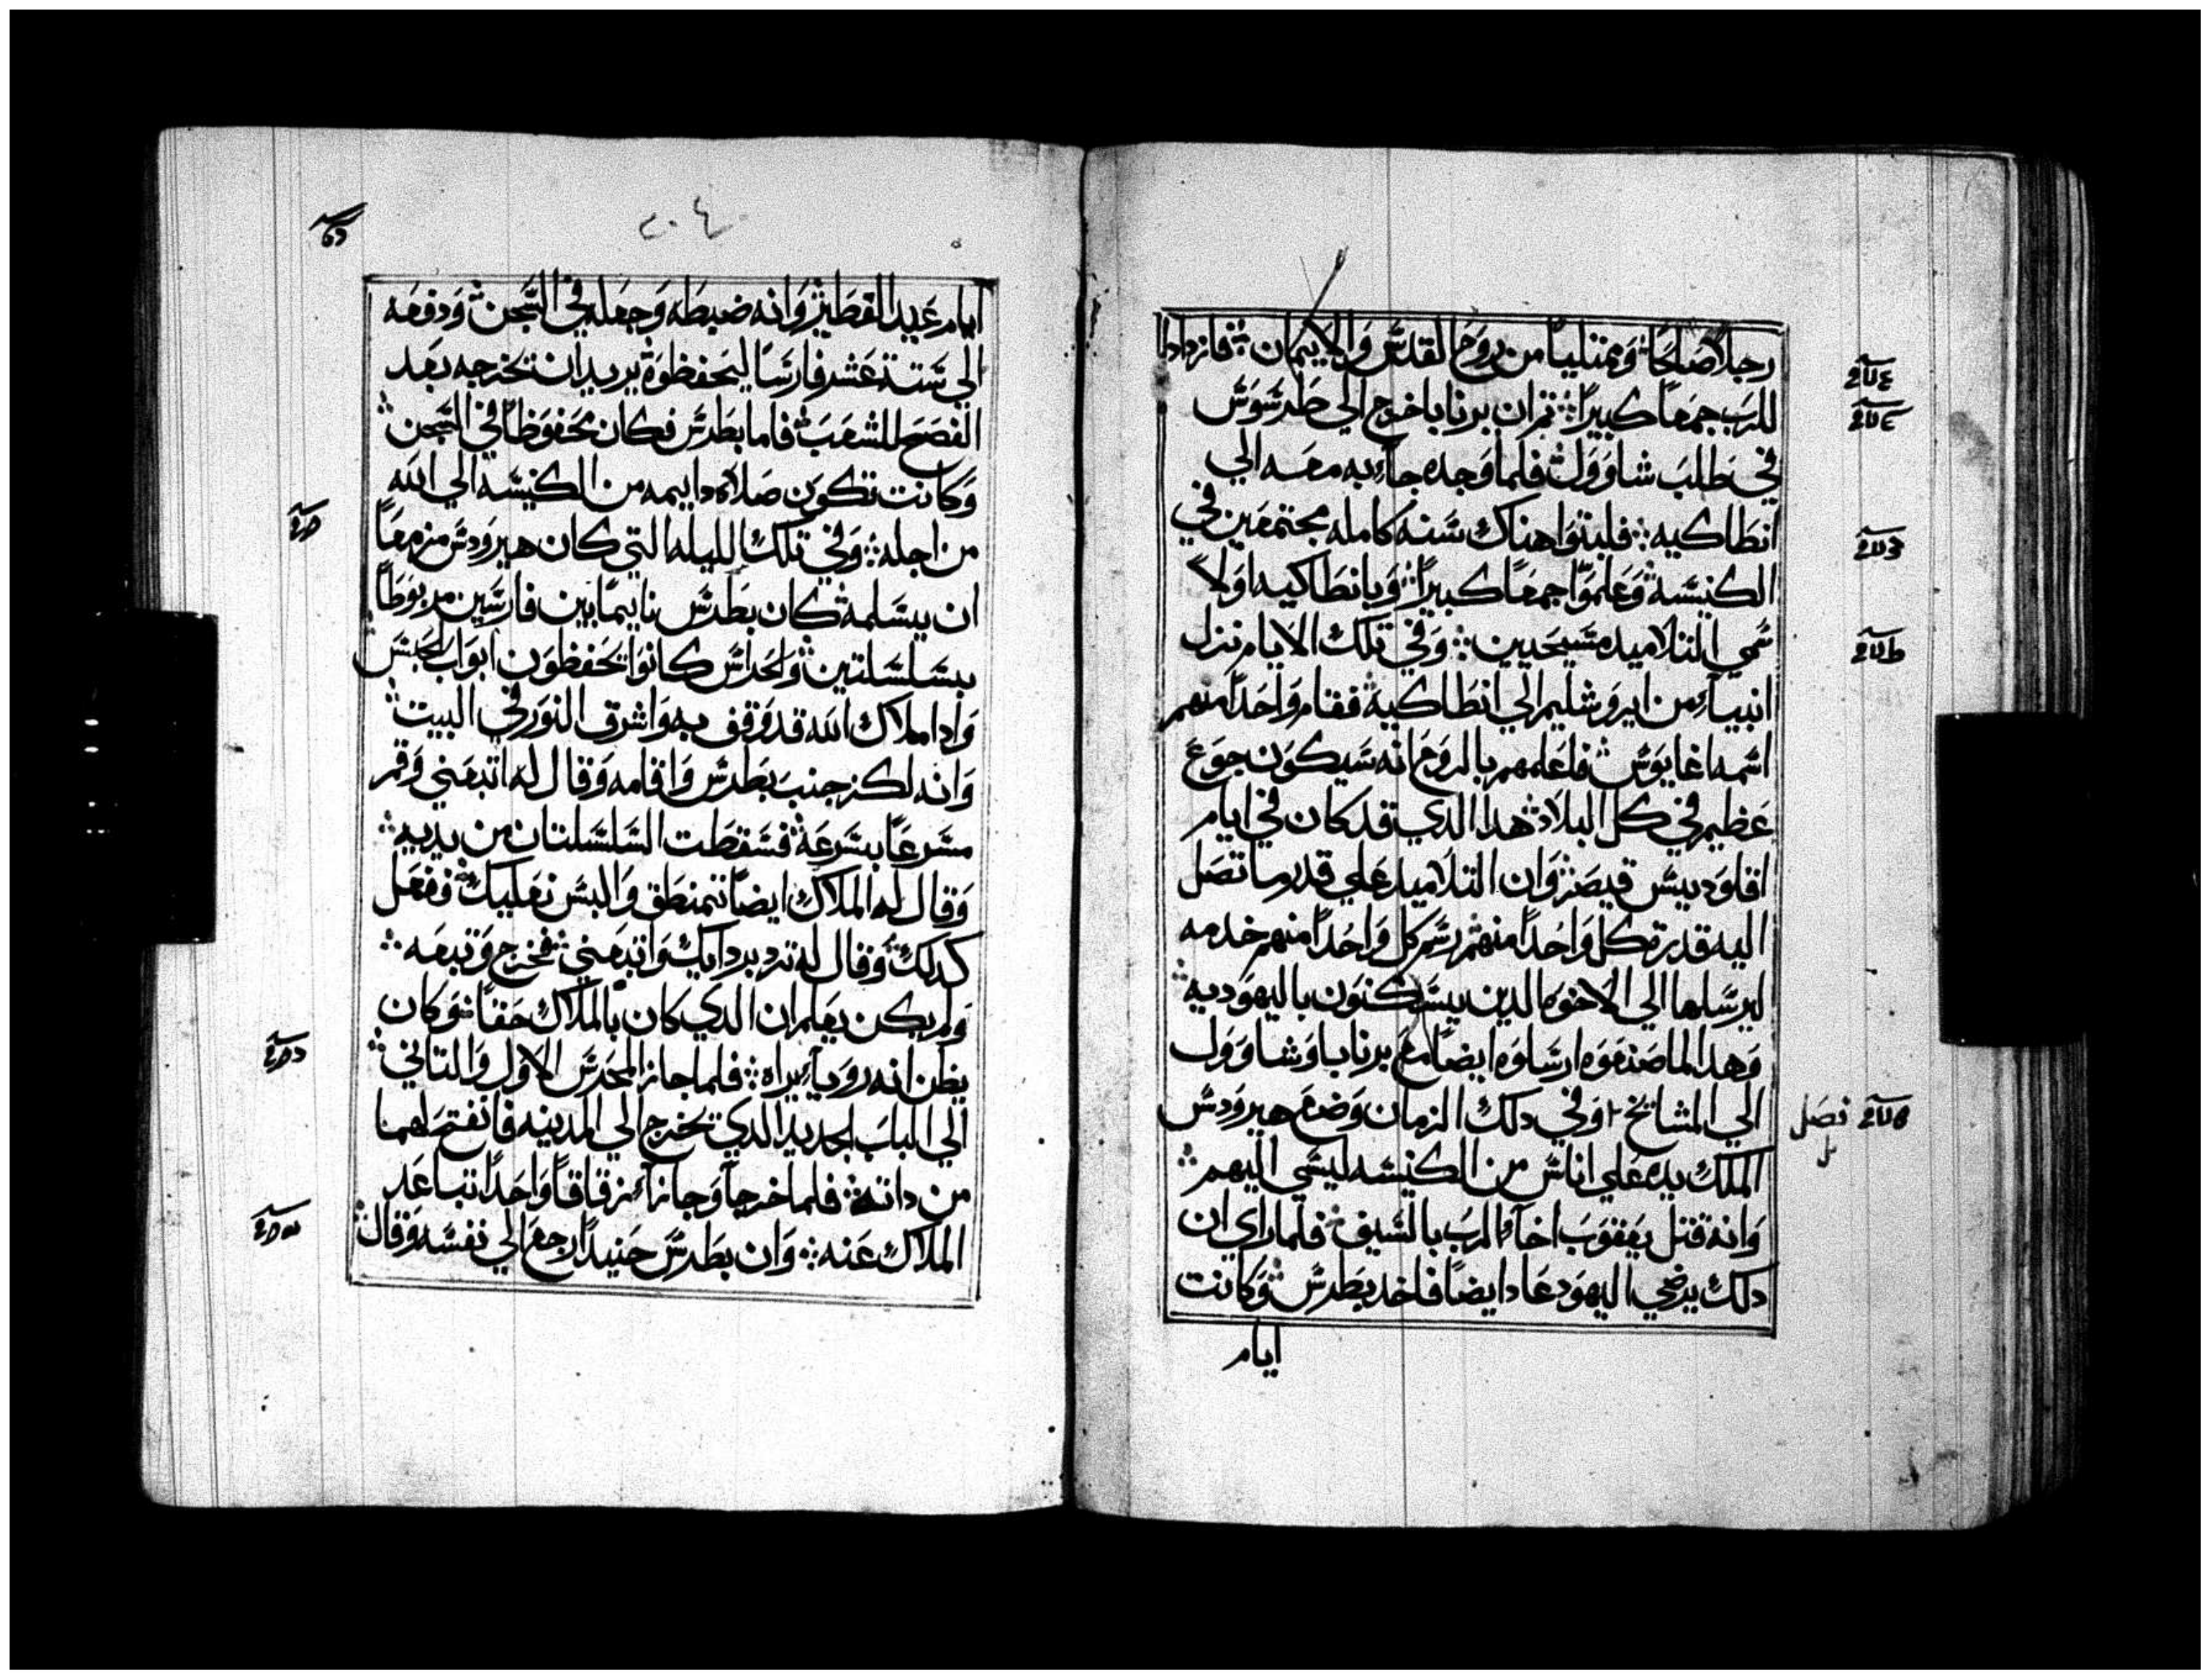 رجلاً صالحاً وممتلياً من روح القدس والايمان فازدادا
للرب جمعاً كبيراً ثم ان برنابا خرج الي طرسوس
في طلب شاوول فلما وجده جاء به معه الي
انطاكيه فلبثوا هناك سنه كامله مجتمعين في
الكنيسه وعلموا جمعاً كبيراً وبانطاكيه اولاً
سمي التلاميد مسيحيين وفي تلك الايام نزل
انبياء من ايروشليم الي انطاكيه فقام واحداً منهم
اسمه اغابوس فاعلمهم بالروح انه سيكون جوع
عظيم في كل البلاد هدا الدي قد كان في ايام
اقلوديس قيصر وان التلاميد علي قدر ما تصل
اليه قدرة كل واحداً منهم رسم كل واحداً منهم خدمه
ليرسلها الي الاخوه الدين يسكنون باليهوديه
وهدا لما صنعوه ارسلوه ايضاً مع برنابا وشاوول
الي المشايخ وفي دلك الزمان وضع هيرودس
فصل
الملك يده علي اناس من الكنيسه ليسي اليهم
وانه قتل يعقوب اخا الرب بالسيف فلما راي ان
دلك يرضي اليهود عاد ايضاً فاخد بطرس وكانت
ايام
٢٠٤
ايام عيد الفطير وانه ضبطه وجعله في السجن ودفعه
الي ستة عشر فارساً ليحفظوه يريد ان تخرجه بعد
الفصح للشعب فاما بطرس فكان محفوظاً في السجن
وكانت تكون صلاه داييمه من الكنيسه الي الله
من اجله وفي تلك الليله التي كان هيرودس مزمعاً
ان يسلمه كان بطرس ناييماً بين فارسين مربوطاً
بسلسلتين والحراس كانوا يحفظون ابواب الحبس
وادا ملاك الله قد وقف به واشرق النور في البيت
وانه لكز جنب بطرس واقامه وقال له اتبعني وقم
مسرعاً بسرعة فسقطت السلسلتان من يديه
وقال له الملاك ايضاً تمنطق والبس نعليك ففعل
كدلك وقال له ترد برداىك واتبعني فخرج وتبعه
ولم يكن يعلم ان الدي كان بالملاك حقاً وكان
يظن انه روياء يراه فلما جاز المحرس الاول والتاني
الي الباب الحديد الدي تخرج الي المدينه فانفتح لهما
من داته فلما خرجا وجازا زقاقاً واحداً تباعد
الملاك عنه وان بطرس حينيداً رجع الي نفسه وقال